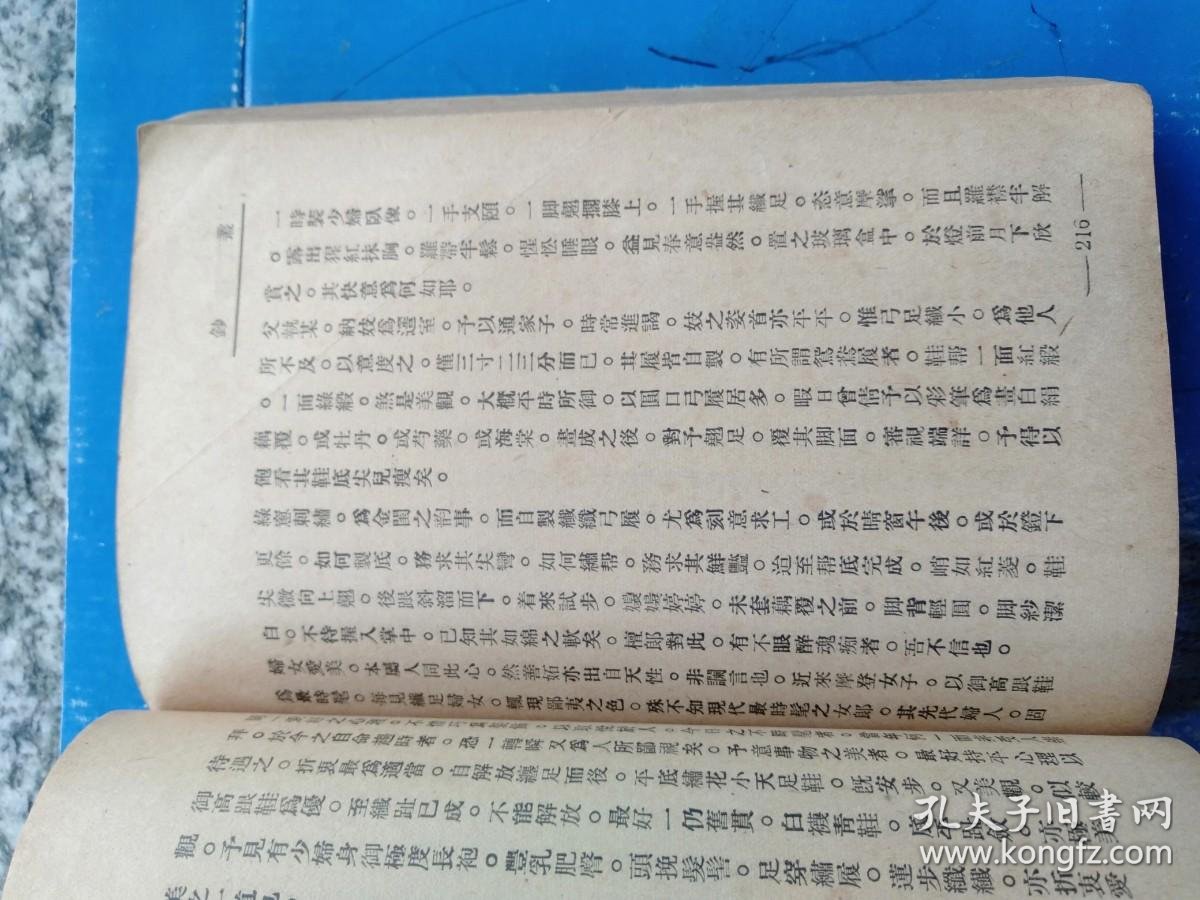 叢鈔
一時裝少婦臥像。一手支頤。一脚翹擱膝上。一手握其纖足。恣意摩挲。而且羅襟半解
。露出猩紅抹胸。羅帶半鬆。惺忪睡眼。益見春意盎然。置之玻璃盒中。於燈前月下欣
賞之。其快意爲何如耶。
父執某。納妓爲簉室。予以通家子。時常進謁。妓之姿首亦平平。惟弓足纖小。爲他人
所不及。以意度之。僅三寸二三分而已。其履皆自製。有所謂鴛鴦履者。鞋幫一面紅緞
。一面綠緞。煞是美觀。大概平時所御。以圓口弓履居多。暇日曾倩予以彩筆爲畫白絹
藕覆。或牡丹。或芍藥。或海棠。畫成之後。對予翹足。覆其脚面。審視端詳。予得以
飽看其鞋底尖兒瘦矣。
綠窗刺繡。爲金閨之韵事。而自製纖纖弓履。尤爲刻意求工。或於晴窗午後。或於燈下
更餘。如何製底。務求其尖彎。如何繡幇。務求其鮮豔。迨至幇底完成。峭如紅菱。鞋
尖微向上翹。後跟斜溜而下。着來試步。嬝嬝婷婷。未套藕覆之前。脚背輕圓。脚紗潔
白。不待握入掌中。已知其如綿之軟矣。檀郎對此。有不眼醉魂痴者。吾不信也。
婦女愛美。本屬人同此心。然善妬亦出自天性。非讕言也。近來摩登女子。以御高跟鞋
爲最時髦。每見纏足婦女。輒現鄙夷之色。殊不知現代最時髦之女郎。其先代婦人。固
216
。於今之自命趨時者。恐一轉瞬又爲人所鄙視矣。予意事物之美者。最好持平心理以
待遇之。折衷最爲適當。自解放纏足而後。平底繡花小天足鞋。旣安步。又美觀。似較
御高跟鞋爲優。至纖趾已成。不能解放。最好一仍舊貫。白襪青鞋
觀。予見有少婦身御極度長袍。豐乳肥臀。頭挽髮髻。足穿繡履。蓮步纖纖。亦折衷愛
孔夫子旧书网
www.kongfz.com